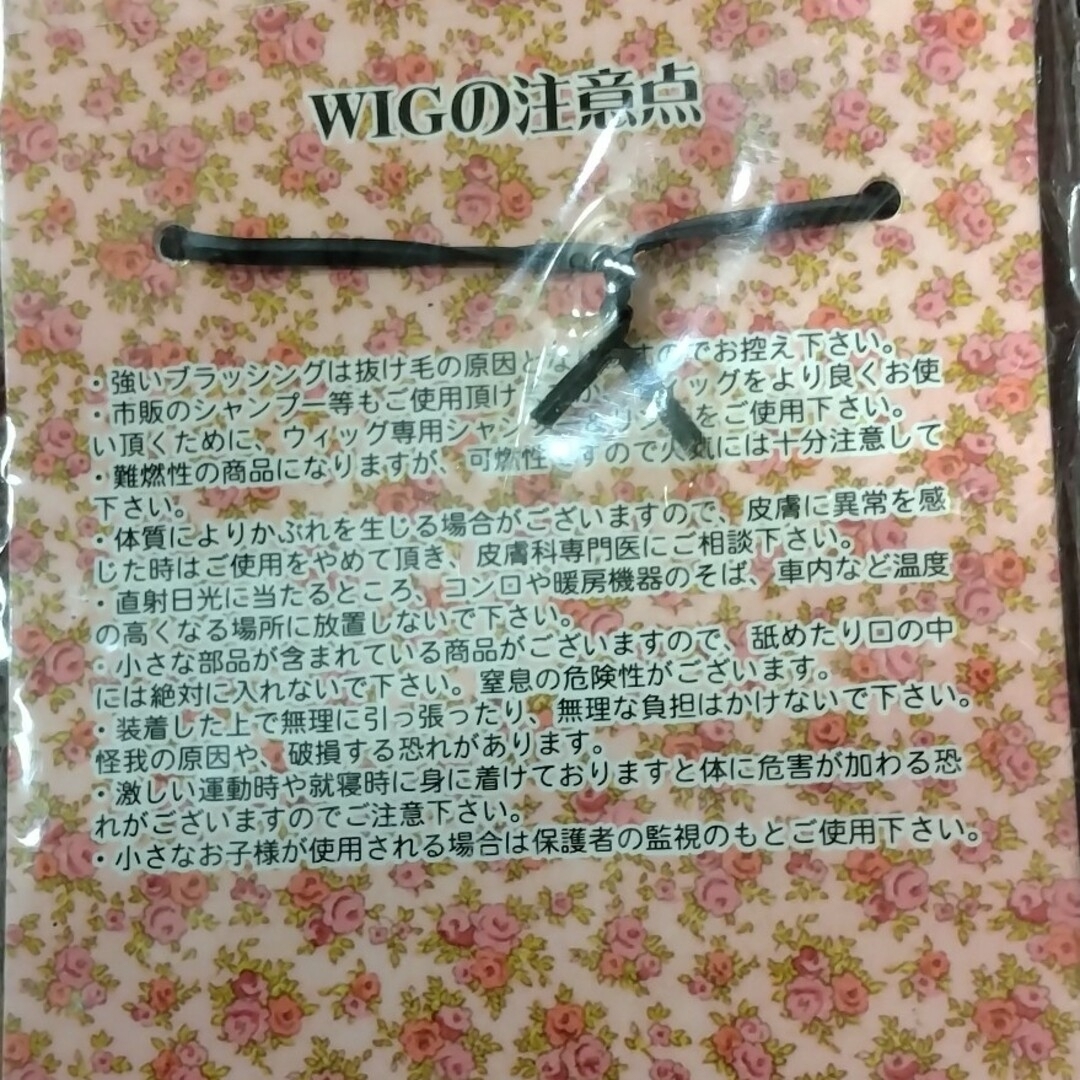 WIGの注意点
・強いブラッシングは抜け毛の原因とな すのでお控え下さい。
・市販のシャンプー等もご使用頂け ィッグをより良くお使
い頂くために、ウィッグ専用シャン をご使用下さい。
・難燃性の商品になりますが、可燃性ですので火気には十分注意して
下さい。
・体質によりかぶれを生じる場合がございますので、皮膚に異常を感
じた時はご使用をやめて頂き、皮膚科専門医にご相談下さい。
・直射日光に当たるところ、コンロや暖房機器のそば、車内など温度
の高くなる場所に放置しないで下さい。
・小さな部品が含まれている商品がございますので、舐めたり口の中
には絶対に入れないで下さい。窒息の危険性がございます。
・装着した上で無理に引っ張ったり、無理な負担はかけないで下さい。
怪我の原因や、破損する恐れがあります。
・激しい運動時や就寝時に身に着けておりますと体に危害が加わる恐
れがございますのでご注意下さい。
・小さなお子様が使用される場合は保護者の監視のもとご使用下さい。